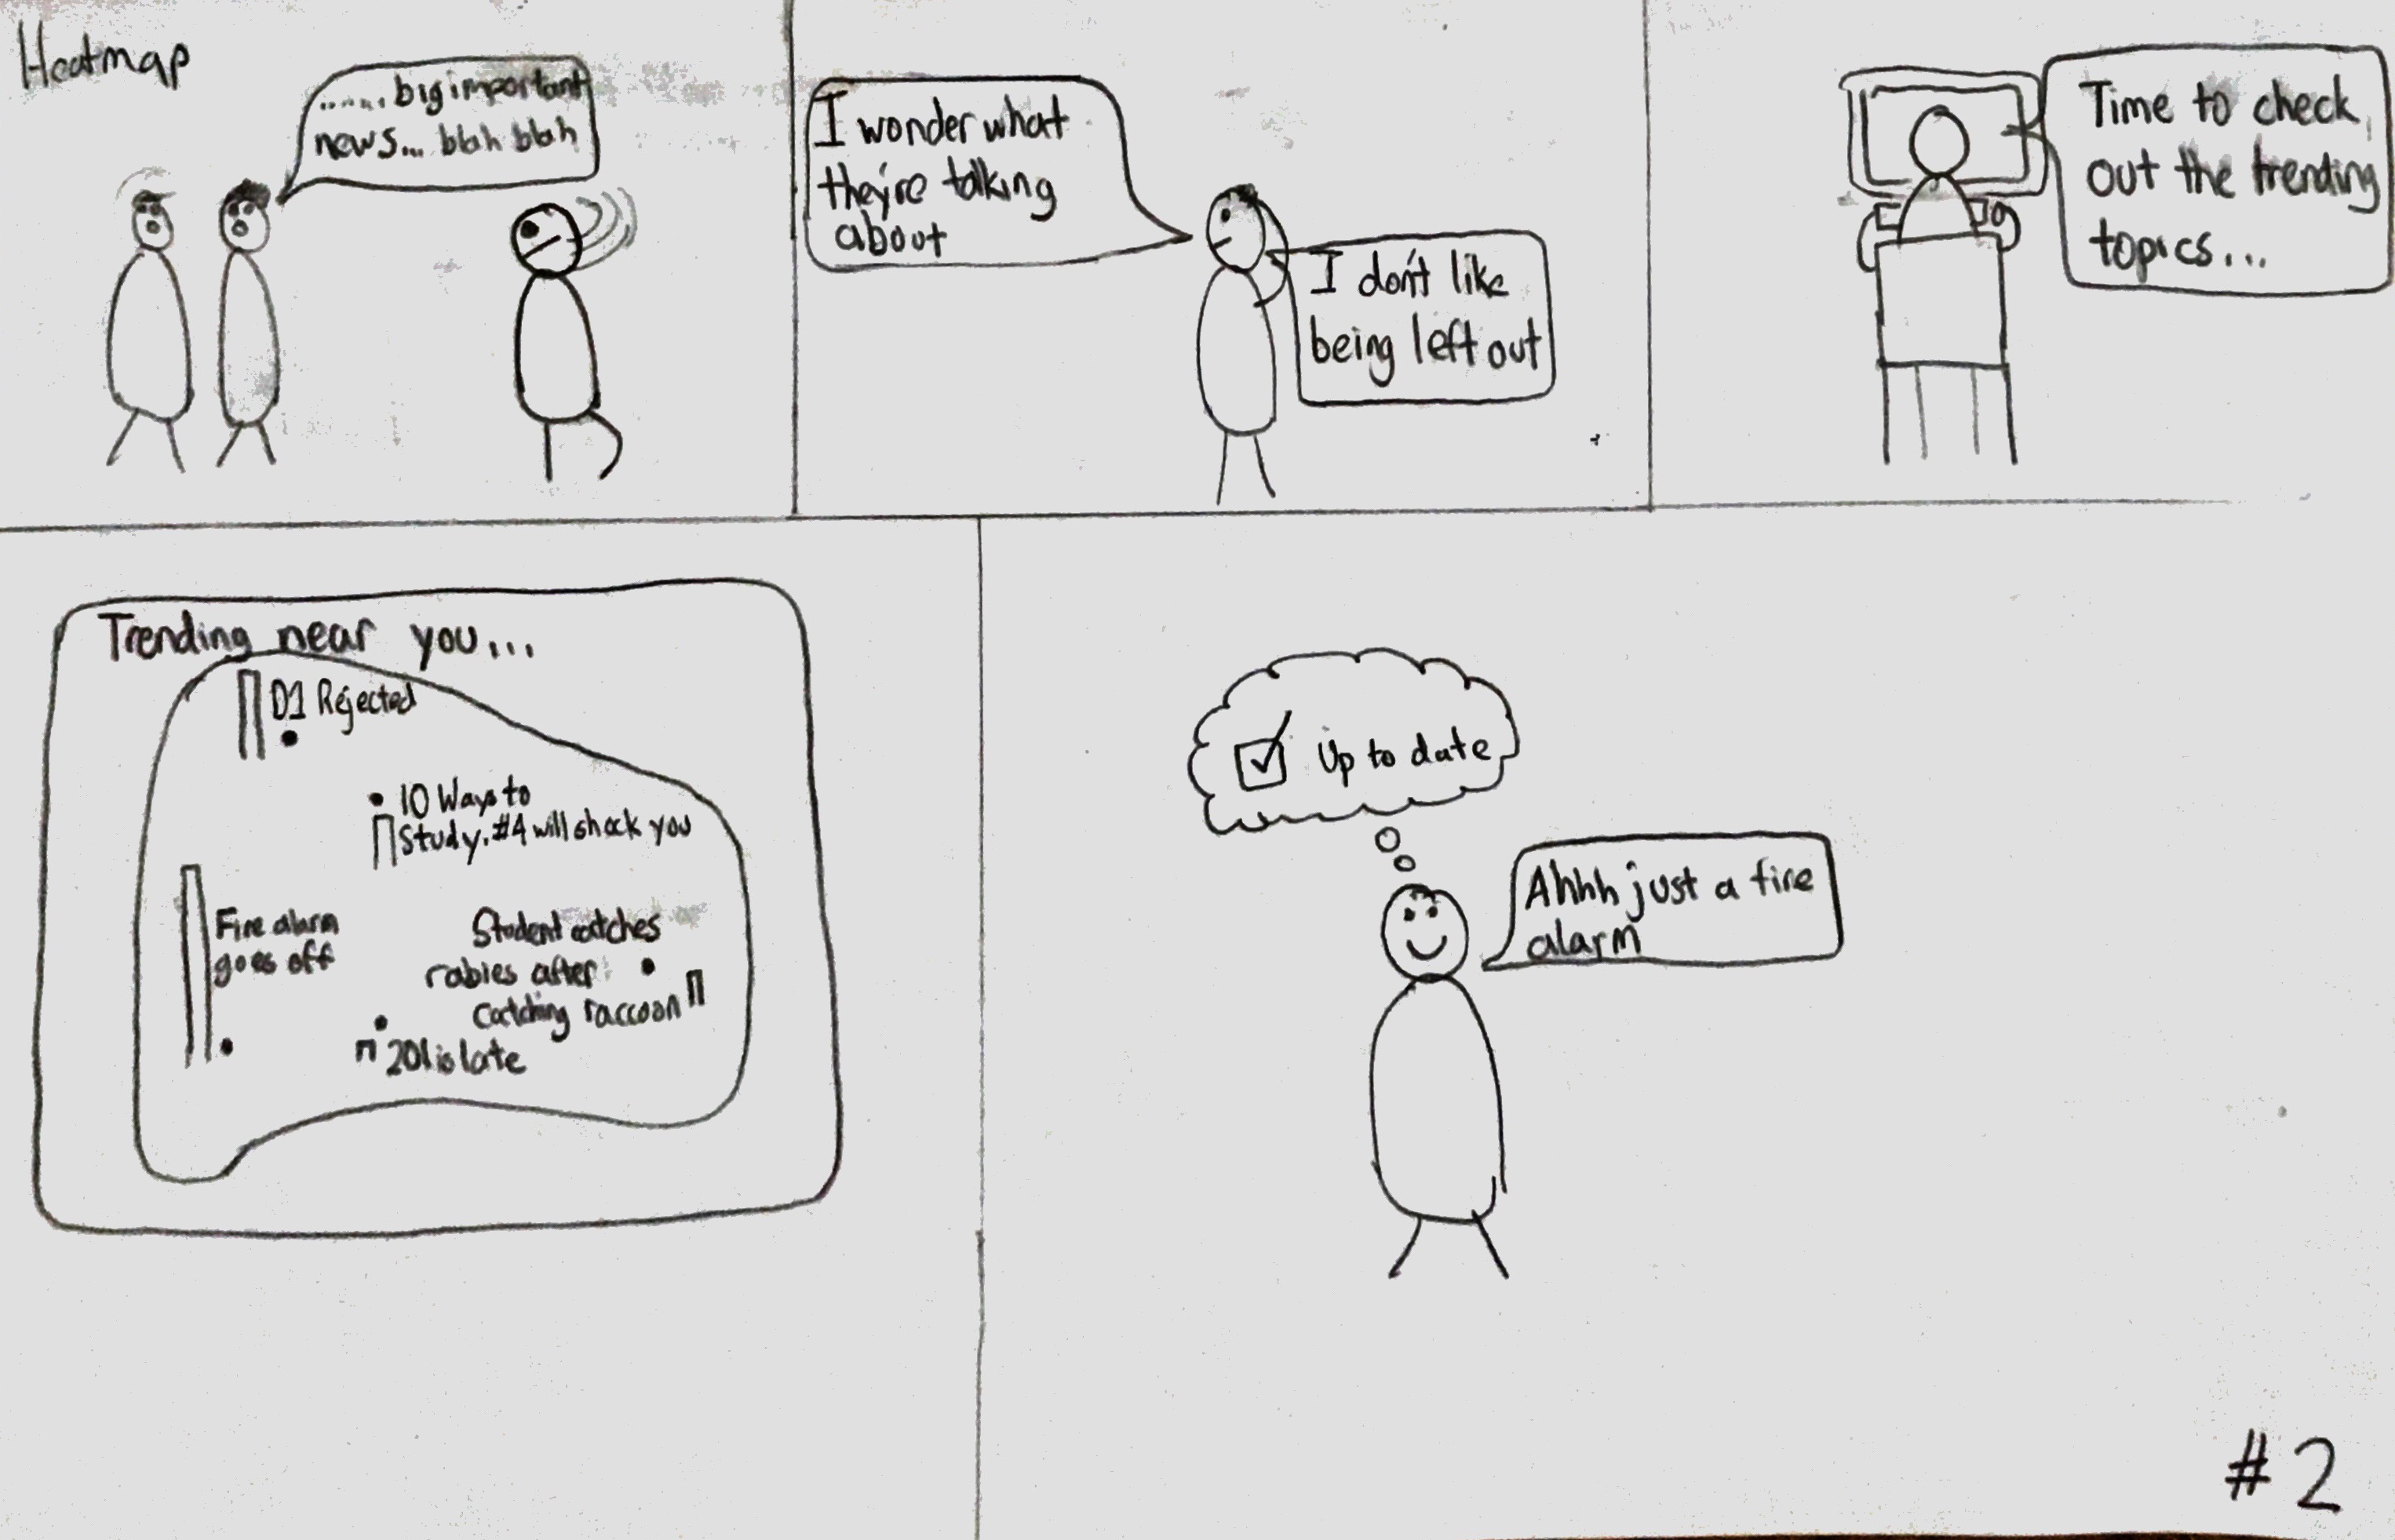 Heatmap
....... big important
news... blah blah
I wonder what
they're talking
about
I don't like
being left out
Time to check
out the trending
topics...
Trending near you...
D1 Rejected
10 Ways to
Study. #4 will shock you
Fire alarm
goes off
Student catches
rabies after
catching raccoon
201 is late
Up to date
Ahhh just a fire
alarm
#2